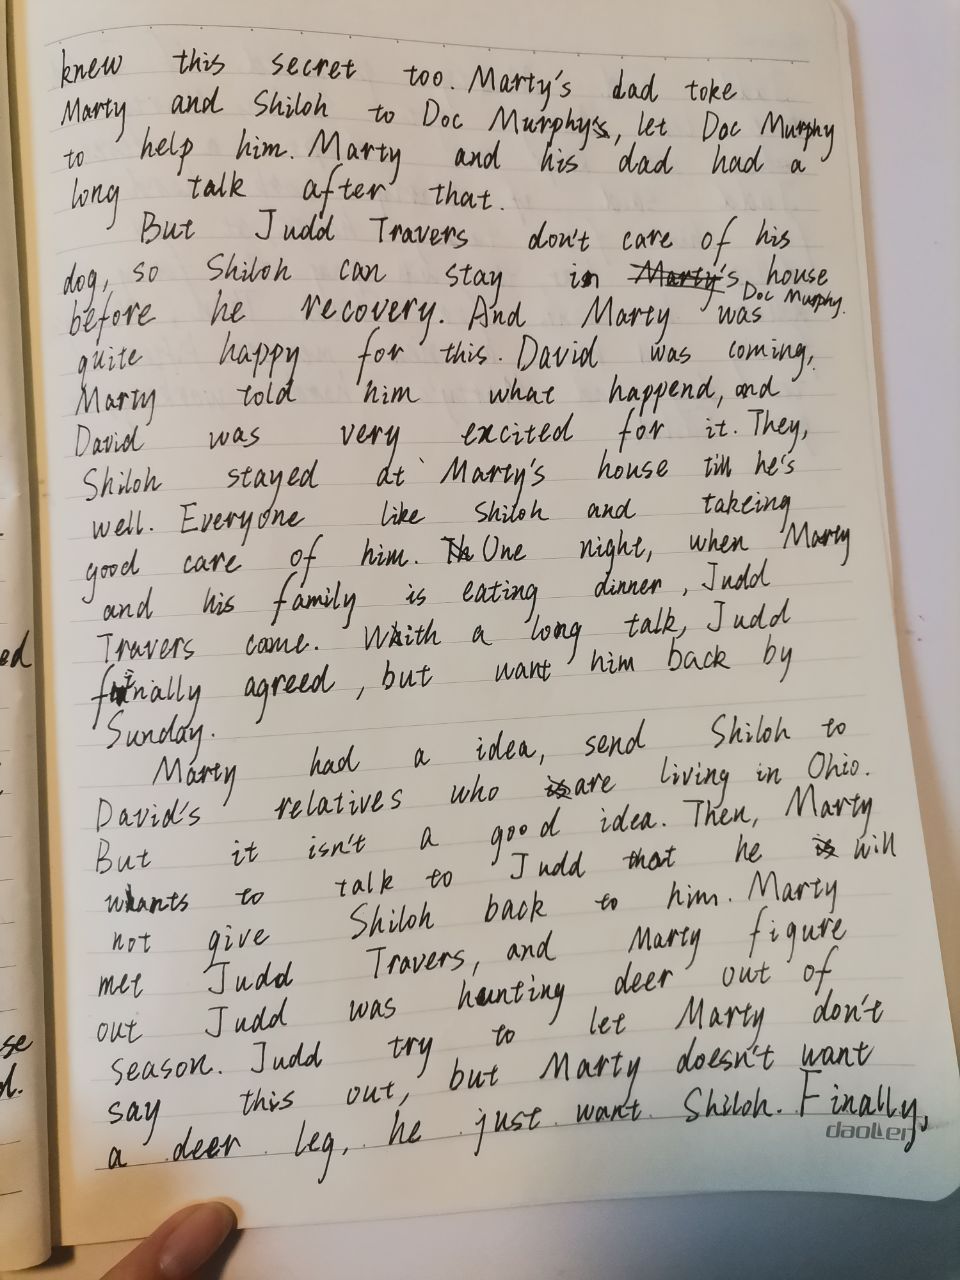 knew this secret too. Marty's dad toke
Marty and Shiloh to Doc Murphy's, let Doc Murphy
to help him. Marty and his dad had a
long talk after that.
But Judd Travers don't care of his
dog, so Shiloh can stay in Marty's house
Doc Murphy.
before he recovery. And Marty was
quite happy for this. David was coming,
Marty told him what happend, and
David was very excited for it. They,
Shiloh stayed at Marty's house till he's
well. Everyone like Shiloh and takeing
good care of him. Th One night, when Marty
and his family is eating dinner, Judd
Travers come. With a long talk, Judd
finally agreed, but want him back by
Sunday.
Marty had a idea, send Shiloh to
David's relatives who is are living in Ohio.
But it isn't a good idea. Then, Marty
wants to talk to Judd that he is will
not give Shiloh back to him. Marty
met Judd Travers, and Marty figure
out Judd was hunting deer out of
season. Judd try to let Marty don't
say this out, but Marty doesn't want
a deer leg, he just want Shiloh. Finally,
daoLen
ed
se
d.